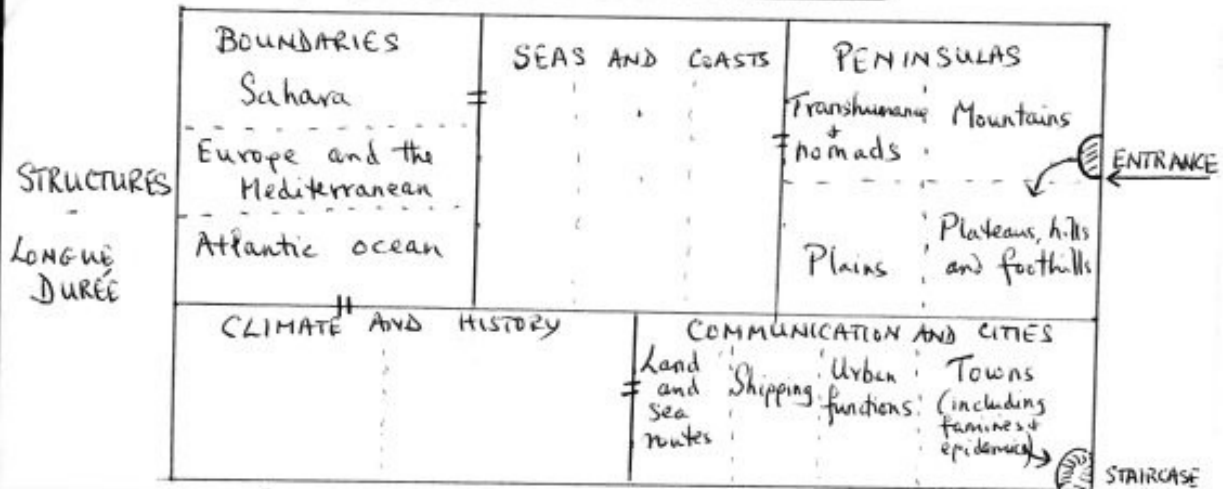 BOUNDARIES
Sahara
Europe and the
Mediterranean
Atlantic ocean
SEAS AND COASTS
PENINSULAS
Transhumance
+
nomads
Mountains
Plains
Plateaus, hills
and foothills
ENTRANCE
STRUCTURES
-
LONGUE
DURÉE
CLIMATE AND HISTORY
COMMUNICATION AND CITIES
Land
and
sea
routes
Shipping
Urban
functions
Towns
(including
famines +
epidemics)
STAIRCASE